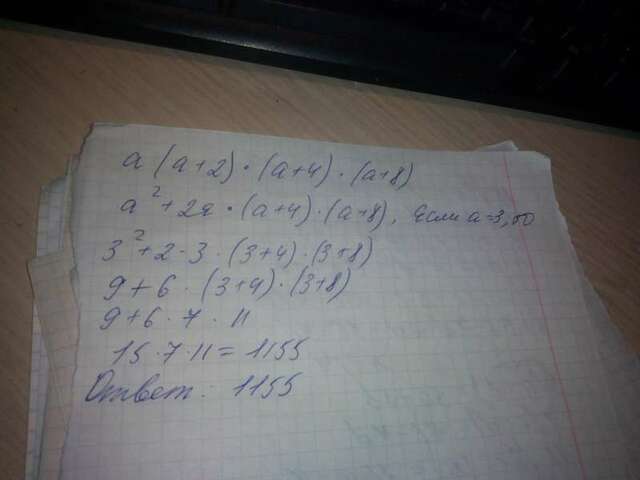 a (a+2) · (a+4) · (a+8)
a² + 2a · (a+4) · (a+8), если a=3, то
3² + 2 · 3 · (3+4) · (3+8)
9 + 6 · (3+4) · (3+8)
9 + 6 · 7 · 11
15 · 7 · 11 = 1155
Ответ: 1155